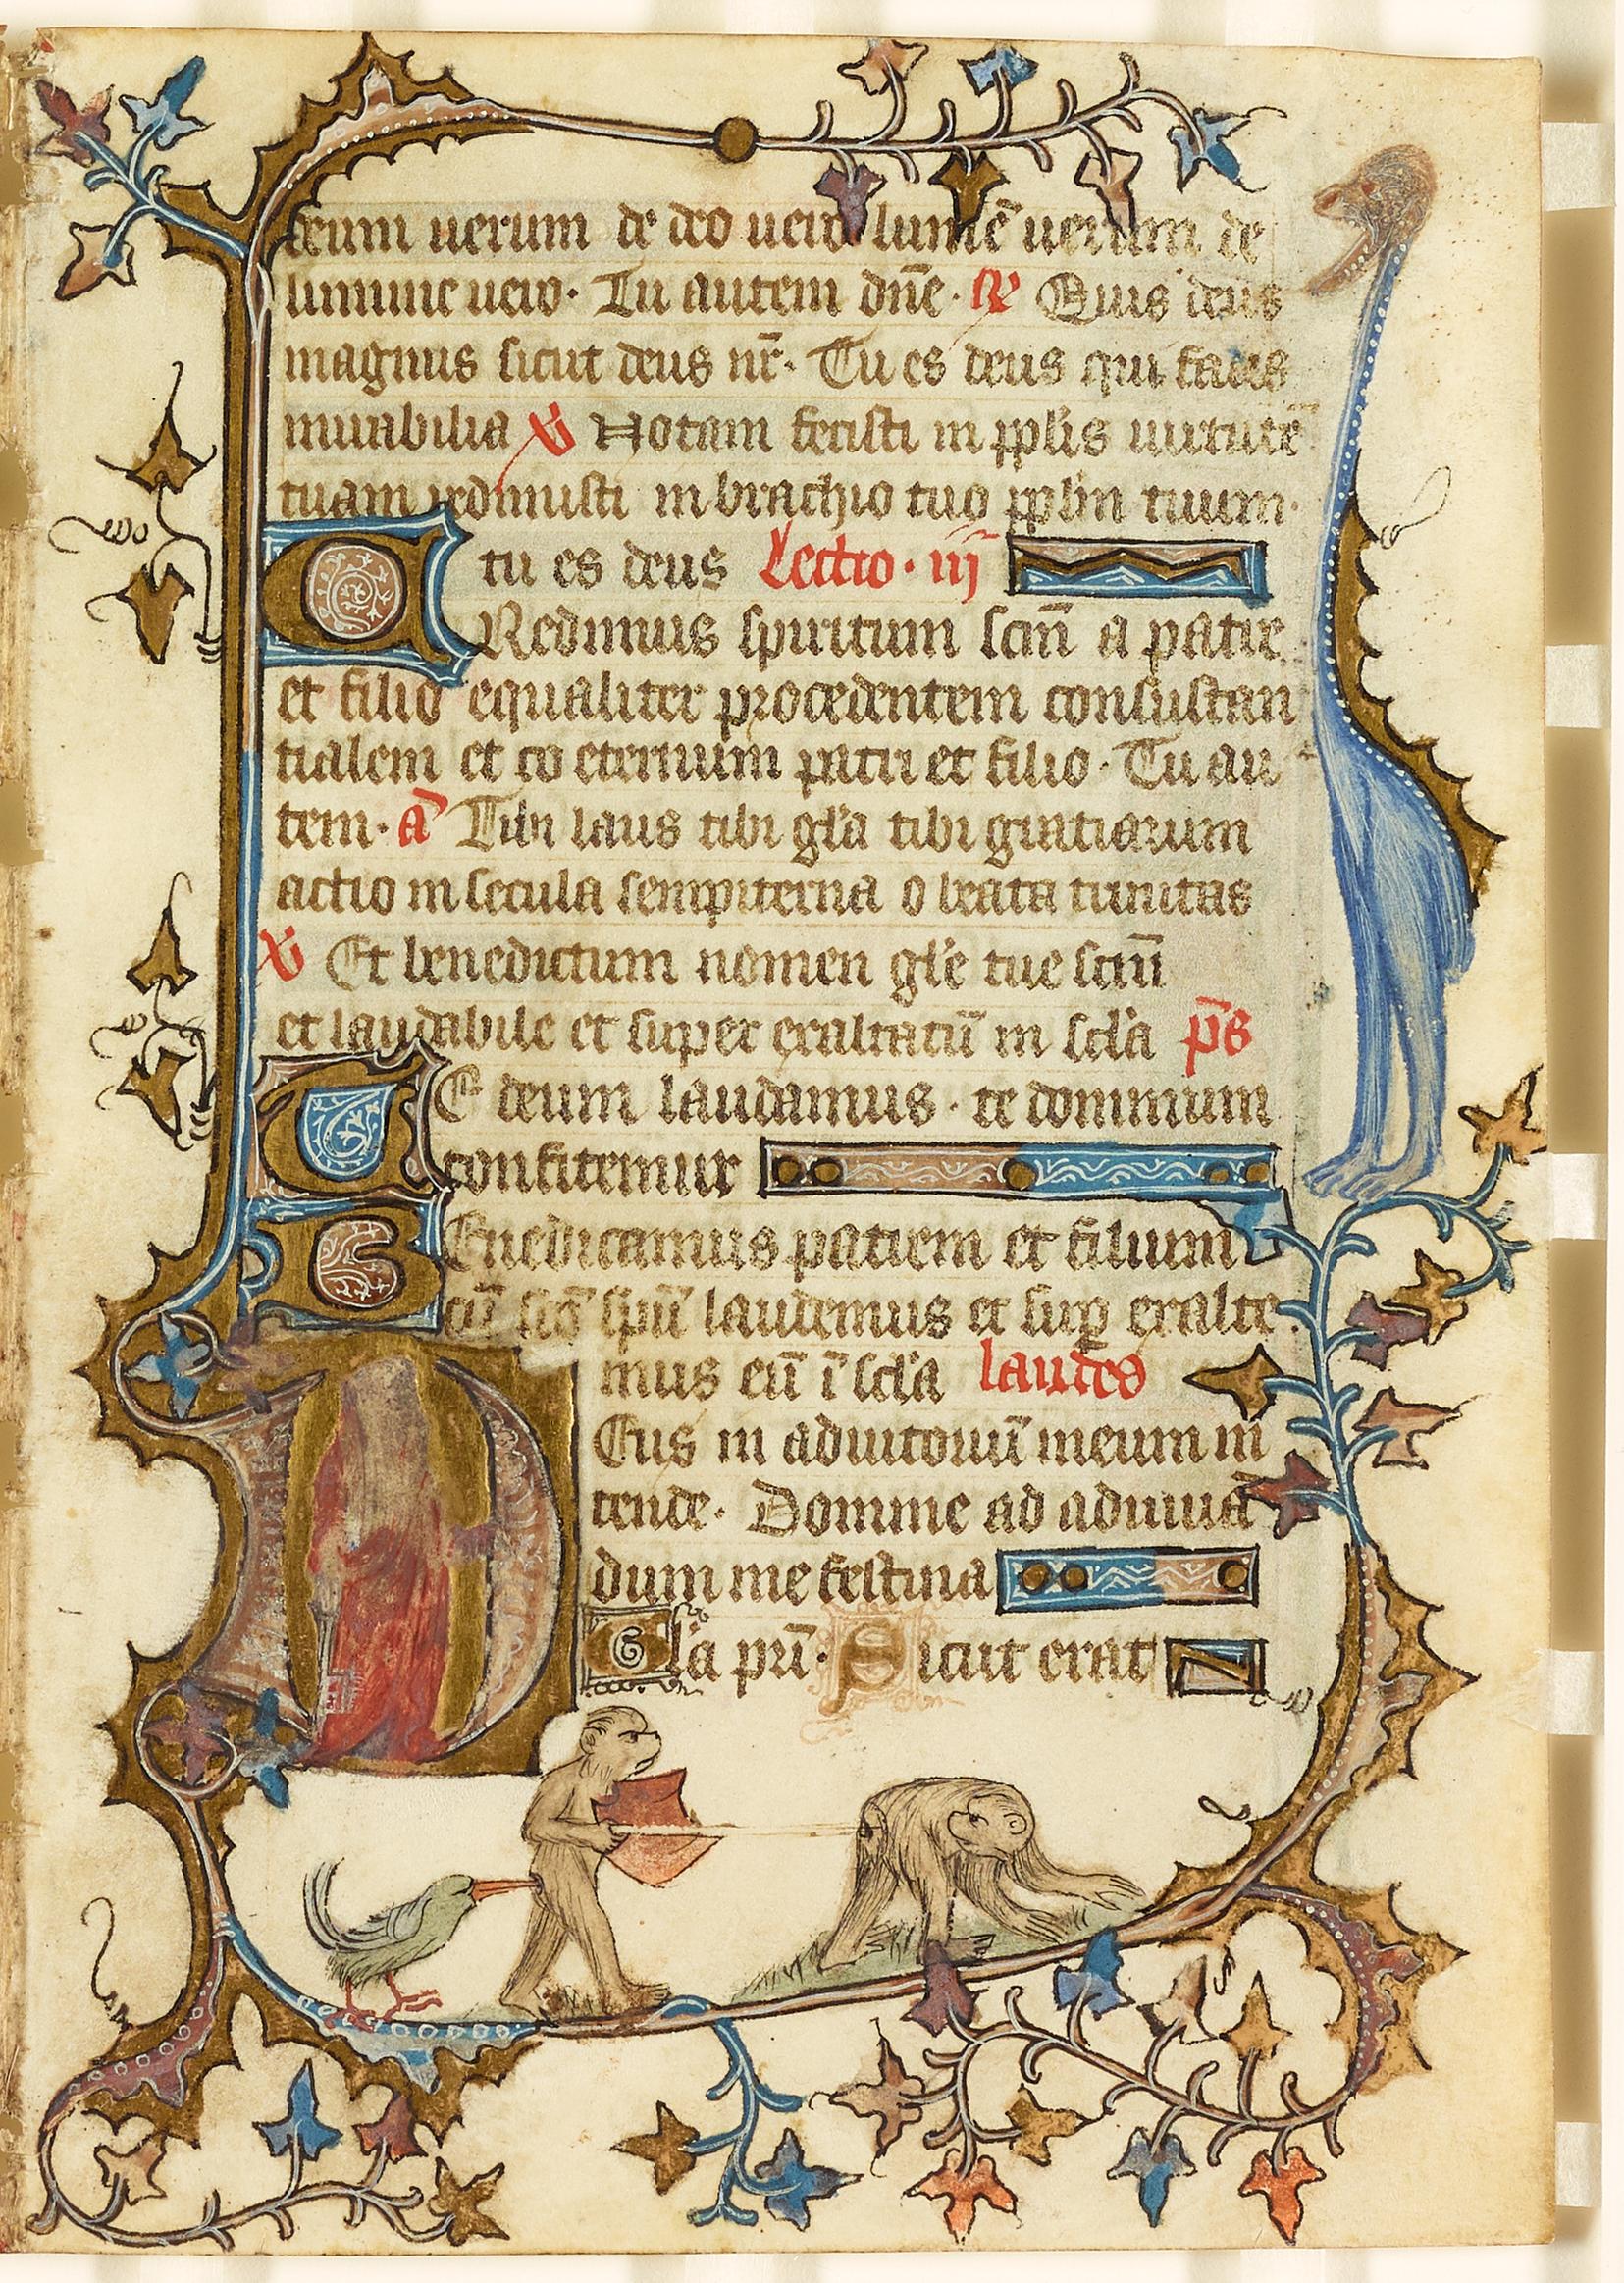 deum uerum de deo uero lumē uerum de
lumine uero. Tu autem dn̄e. ℟ Quis deus
magnus sicut deus nr̄. Tu es deus qui facis
mirabilia ℣ Notam fecisti in pp̄lis uirtutē
tuam redimisti in brachio tuo pp̄lm tuum.
tu es deus Lectio. iij
CRedimus spiritum sc̄m a patre
et filio equaliter procedentem consustan
tialem et co eternum patri et filio. Tu au
tem. a᷄ Tibi laus tibi gl̄a tibi gratiarum
actio in secula sempiterna o beata trinitas
℣ Et benedictum nomen gl̄e tue sc̄m
et laudabile et super exaltatū in sc̄la p̄s
TE deum laudamus. te dominum
confitemur
BEnedicamus patrem et filium
cū sc̄o sp̄u laudemus et suꝑ exalte
mus eū ī sc̄la laudes
DEus in adiutoriū meum in
tende. Domine ad adiuuā
dum me festina
Gl̄a pr̄i. Sicut erat